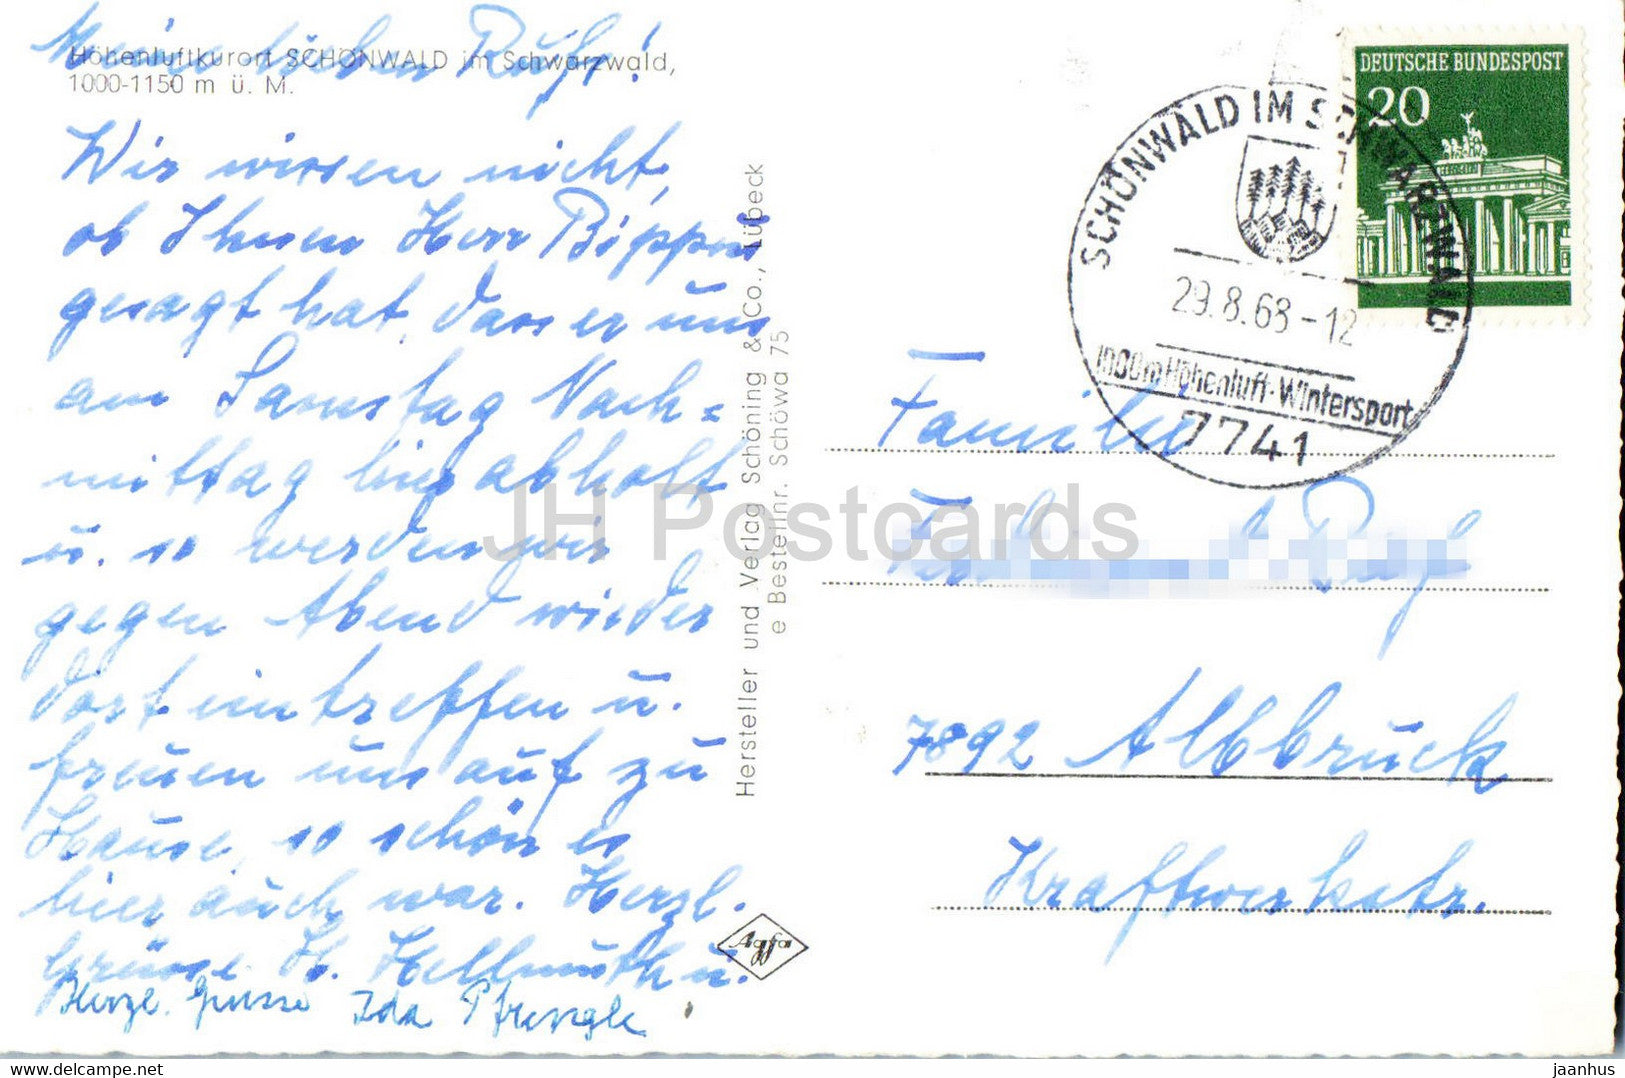 Meine lieben Rufs!
Höhenluftkurort SCHÖNWALD im Schwarzwald,
1000-1150 m ü. M.
Wir wissen nicht,
ob Ihnen Herr Bippus
gesagt hat, dass er uns
am Samstag Nach=
mittag hier abholt
u. so werden wir
gegen Abend wieder
dort eintreffen u.
freuen uns auf zu
Hause, so schön es
hier auch war. Herzl.
Grüsse H. Hellmuth u.
Herzl. Grüsse Ida
Hersteller und Verlag Schöning & Co., Lübeck
e Bestellnr. Schöwa 75
Agfa
DEUTSCHE BUNDESPOST
20
SCHÖNWALD IM SCHWARZWALD
29.8.68-12
1000m Höhenluft-Wintersport
7741
Familie
7892 Albbruck
Kraftwerkstr.
JH Postcards
delcampe.net
jaanhus